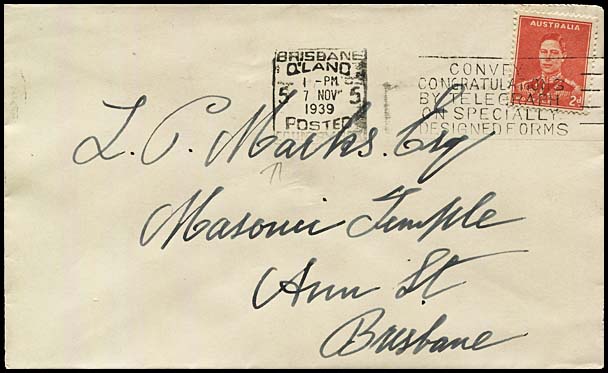 BRISBANE
Q'LAND
1 - PM
5 7 NOV 5
1939
POSTED
AUSTRALIA
2d
CONVEY
CONGRATULATIONS
BY TELEGRAPH
ON SPECIALLY
DESIGNED FORMS
L. P. Marks. Esq
Masonic Temple
Ann St.
Brisbane